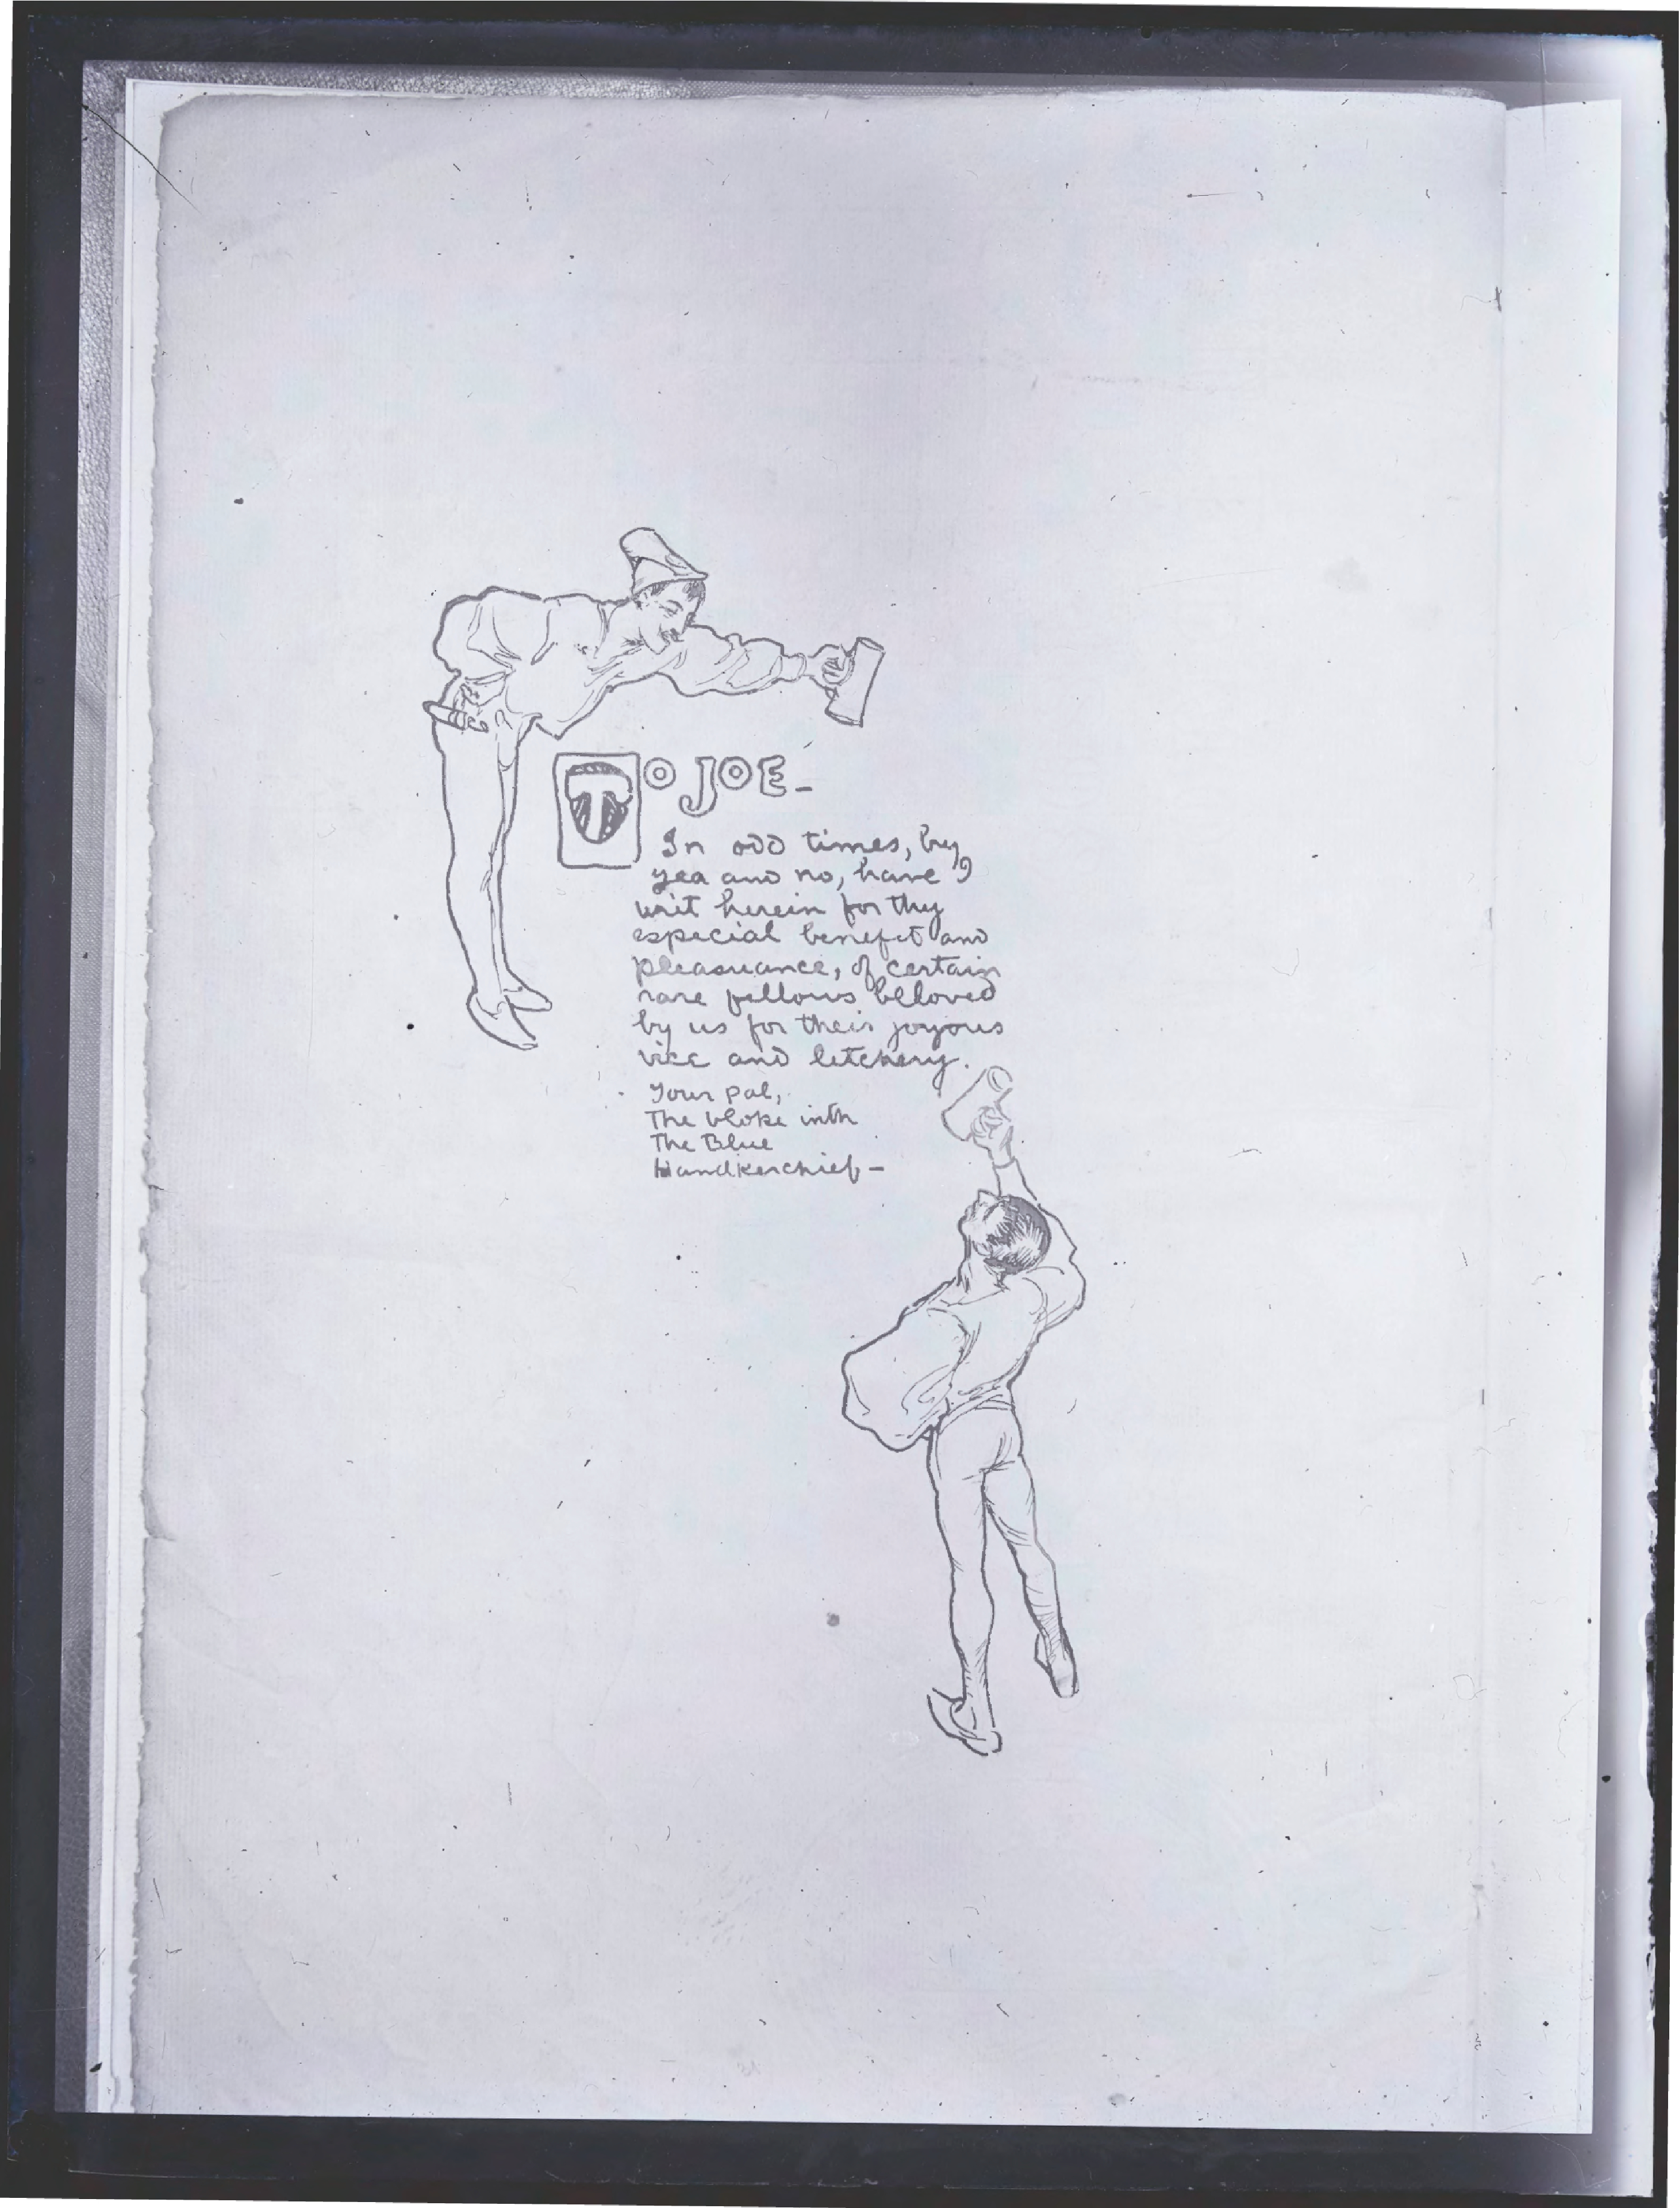 TO JOE-
In odd times, by
yea and no, have I
writ herein for thy
especial benefit and
pleasuance, of certain
rare fellows beloved
by us for their joyous
vice and letchery.
Your pal,
The bloke inth
The Blue
Handkerchief-